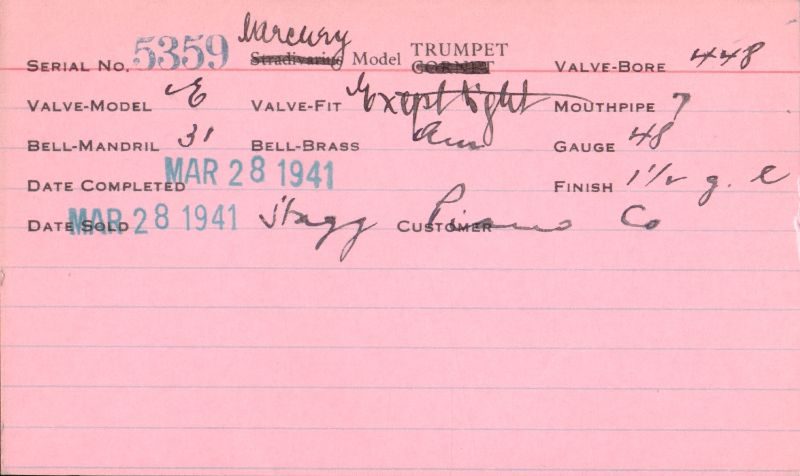 Mercury
SERIAL NO. 5359 Stradivarius Model TRUMPET CORNET VALVE-BORE 448
VALVE-MODEL E VALVE-FIT Exept tight MOUTHPIPE 7
BELL-MANDRIL 31 BELL-BRASS Am GAUGE 48
DATE COMPLETED MAR 28 1941 FINISH 1 1/2 g. l
DATE SOLD MAR 28 1941 Stagg CUSTOMER Piano Co